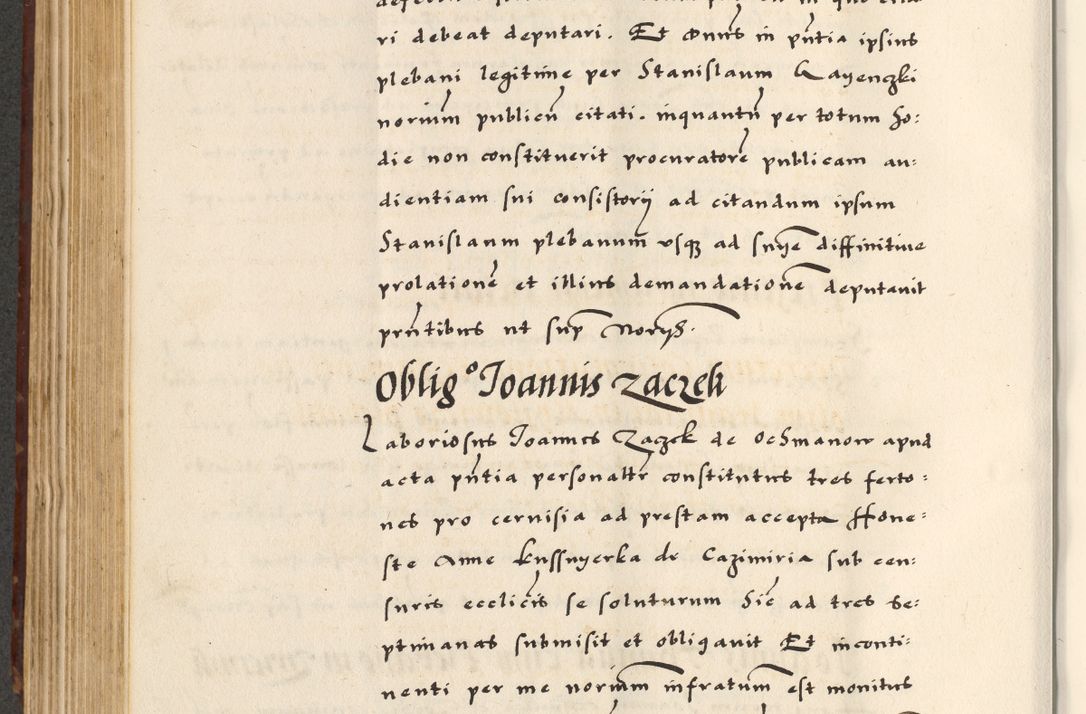 ri debeat deputari. Et Omnis in pñtia ipsius
plebani legitime per Stanislaum Gayenczki
noriūm publicū citati. inquantū per totum ho:
die non constituerit procuratorē publicam au:
dientiam sui consistorij ad citandum ipsum
Stanislaum plebanum vsq₃ ad snīie diffinitiue
prolationē et illius demandationē deputauit
pn̄tibus ut sup Norijs.
Oblig° Ioannis zaczek
Laboriosus Ioannes Zaczek de Ochmanow apud
acta pñtia personaltr constitutus tres ferto:
nes pro ceruisia ad prestam accepta Hone:
ste Anne Kussnyerka de Cazimiria sub cen:
suris eccliēis se soluturum hic ad tres se:
ptimanas submisit et obligauit Et inconti:
nenti per me norium infratum est monitus